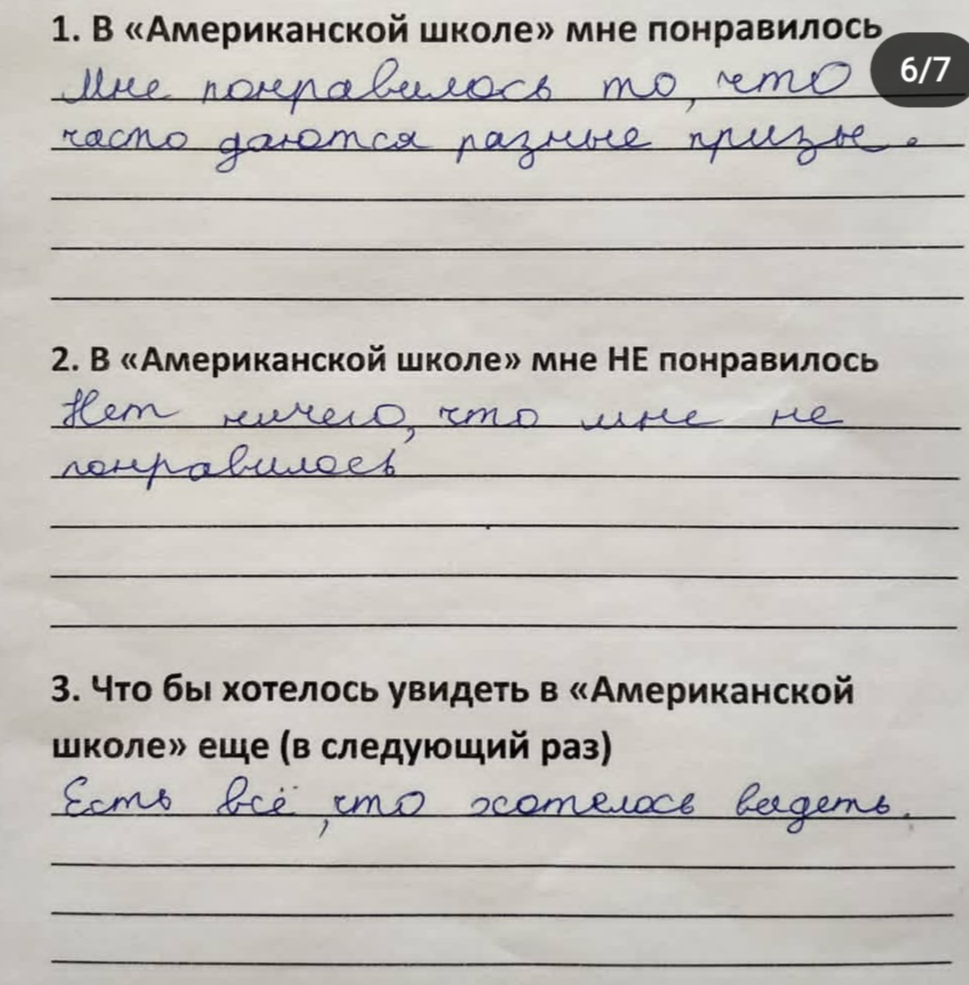 1. В «Американской школе» мне понравилось
6/7
Мне понравилось то, что
часто даются разные призы.
2. В «Американской школе» мне НЕ понравилось
Нет ничего, что мне не
понравилось
3. Что бы хотелось увидеть в «Американской
школе» еще (в следующий раз)
Есть всё, что хотелось видеть.